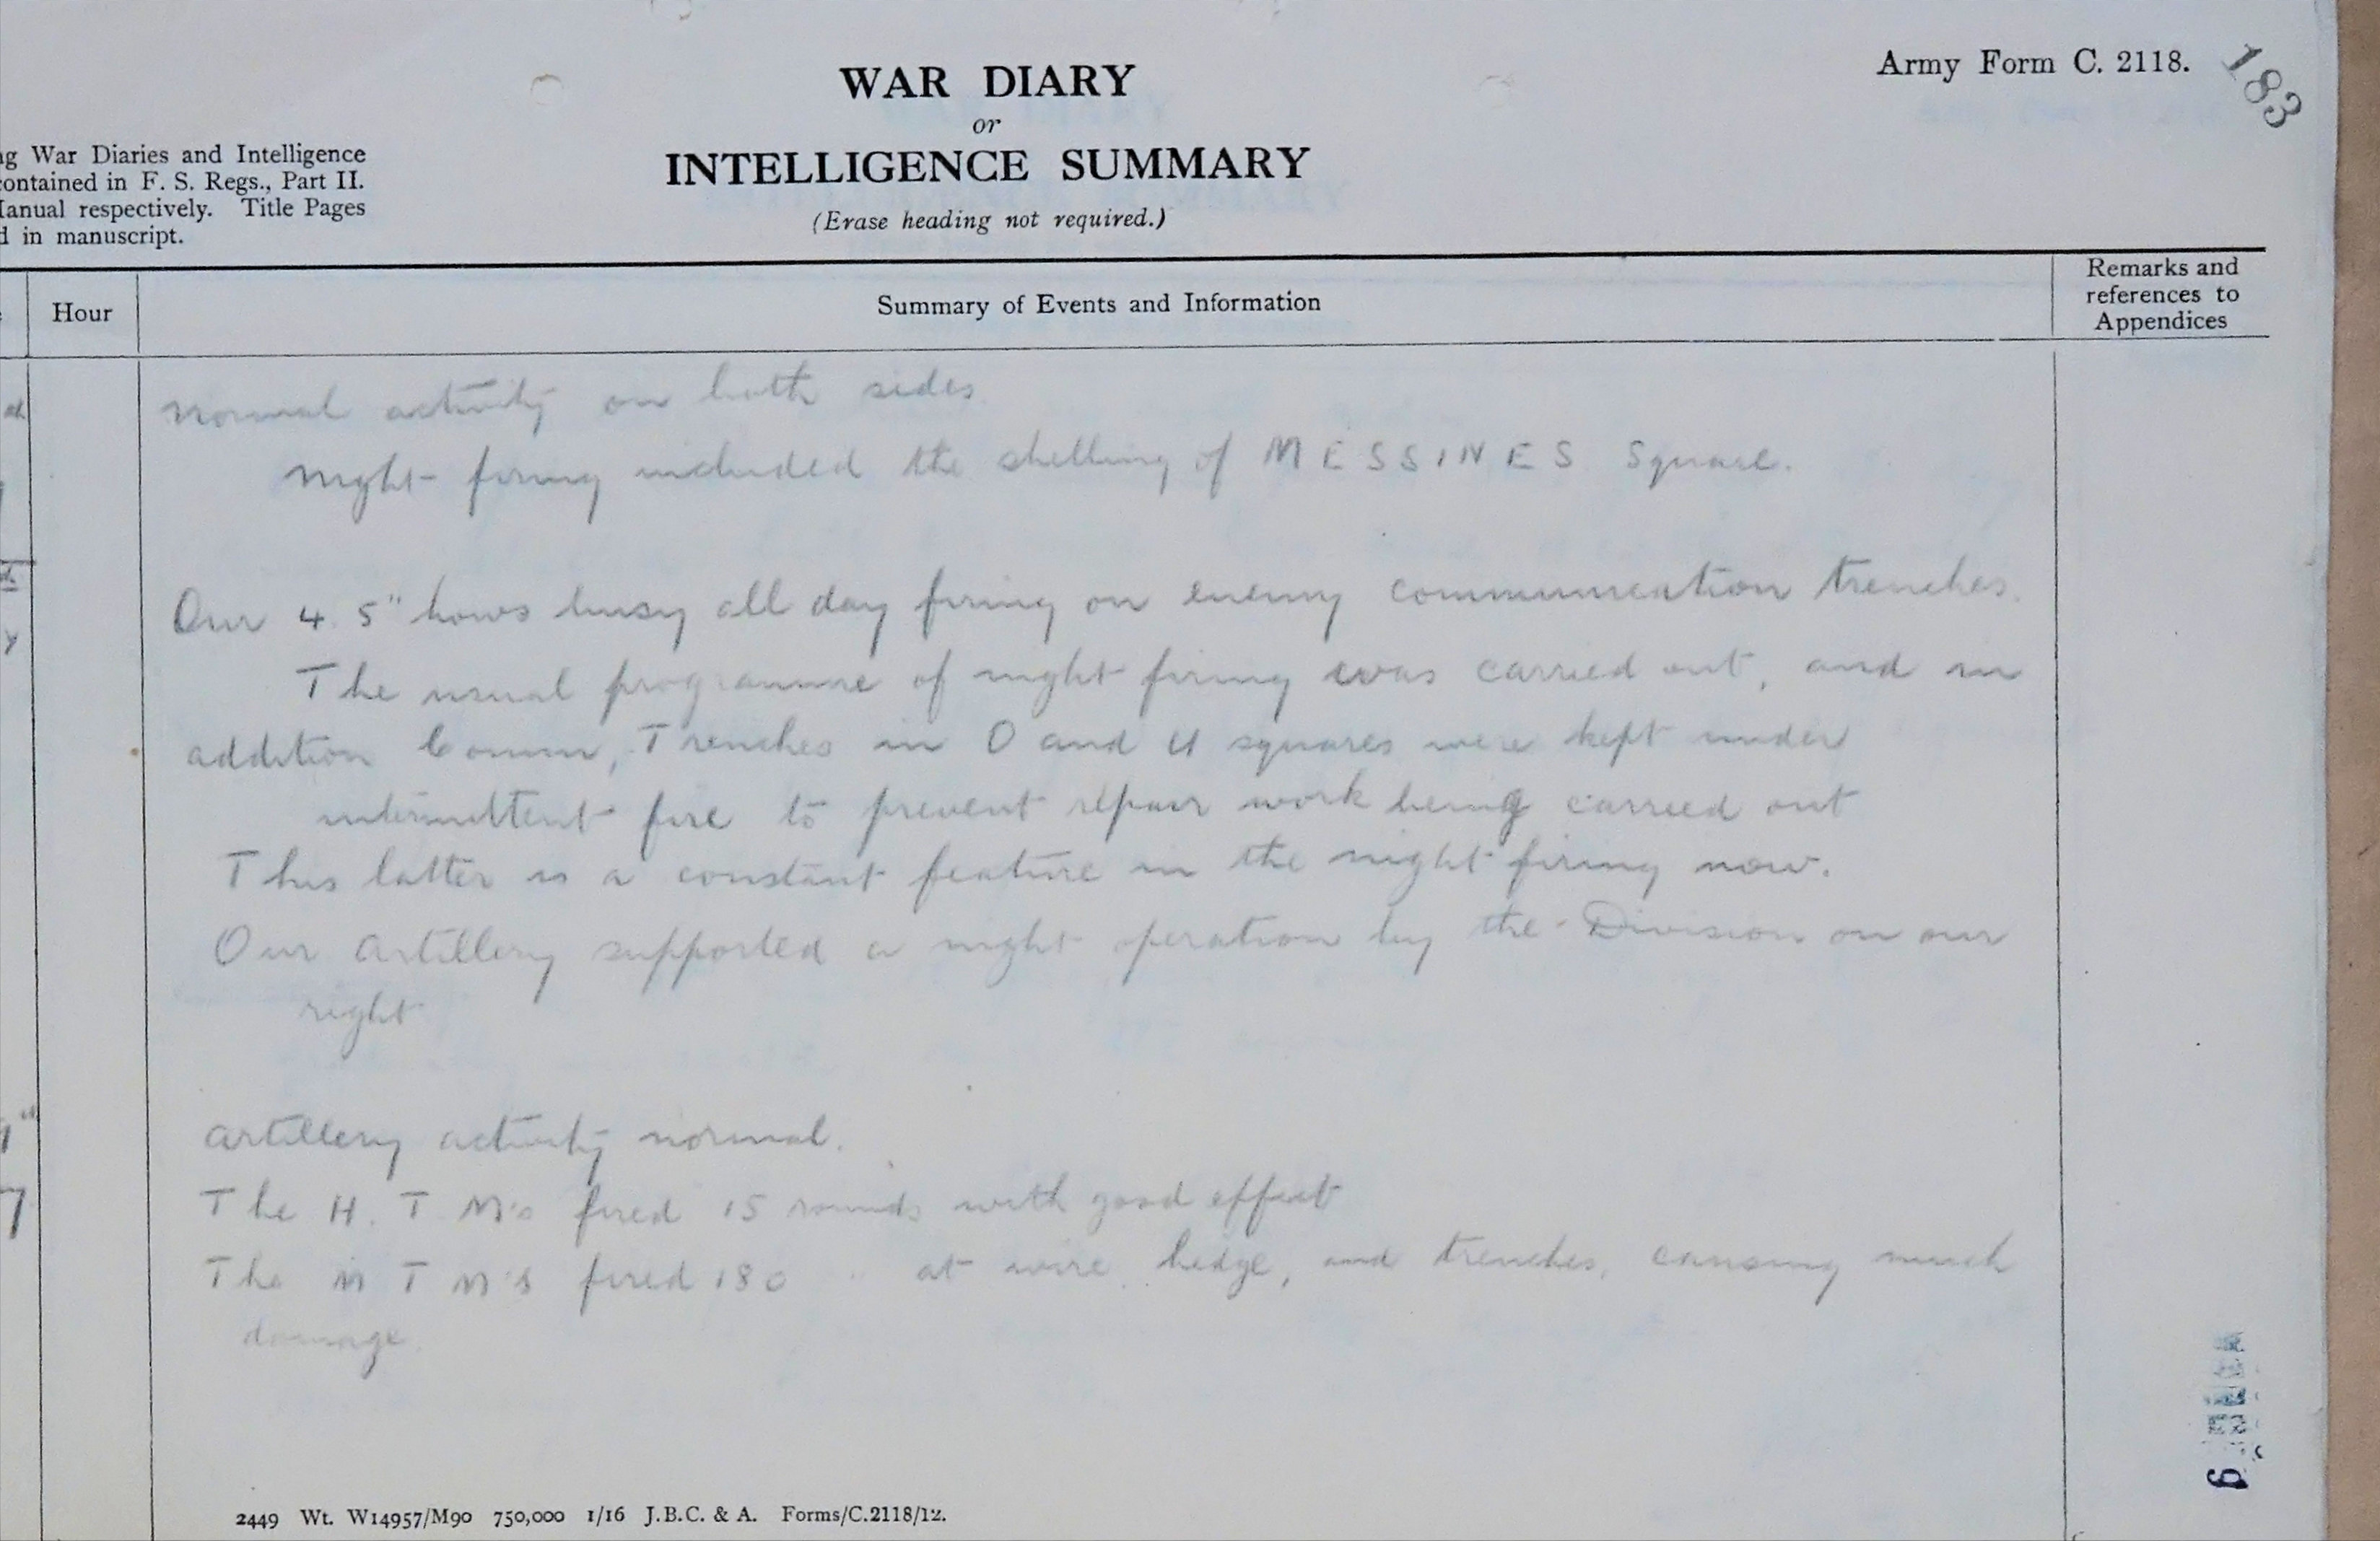 Army Form C. 2118.
183
WAR DIARY
or
INTELLIGENCE SUMMARY
(Erase heading not required.)
g War Diaries and Intelligence
ontained in F. S. Regs., Part II.
anual respectively. Title Pages
d in manuscript.
Hour
Summary of Events and Information
Remarks and
references to
Appendices
Normal activity on both sides
Night firing included the shelling of MESSINES Square.
Our 4.5" hows busy all day firing on enemy communication trenches.
The usual programme of night firing was carried out, and in
addition Comm, Trenches in O and U squares were kept under
intermittent fire to prevent repair work being carried out
This latter is a constant feature in the night firing now.
Our Artillery supported a night operation by the Division on our
right
Artillery activity normal.
The H. T M's fired 15 rounds with good effect
The M T M's fired 180 " at wire, hedge, and trenches, causing much
damage.
2449 Wt. W14957/M90 750,000 1/16 J.B.C. & A. Forms/C.2118/12.